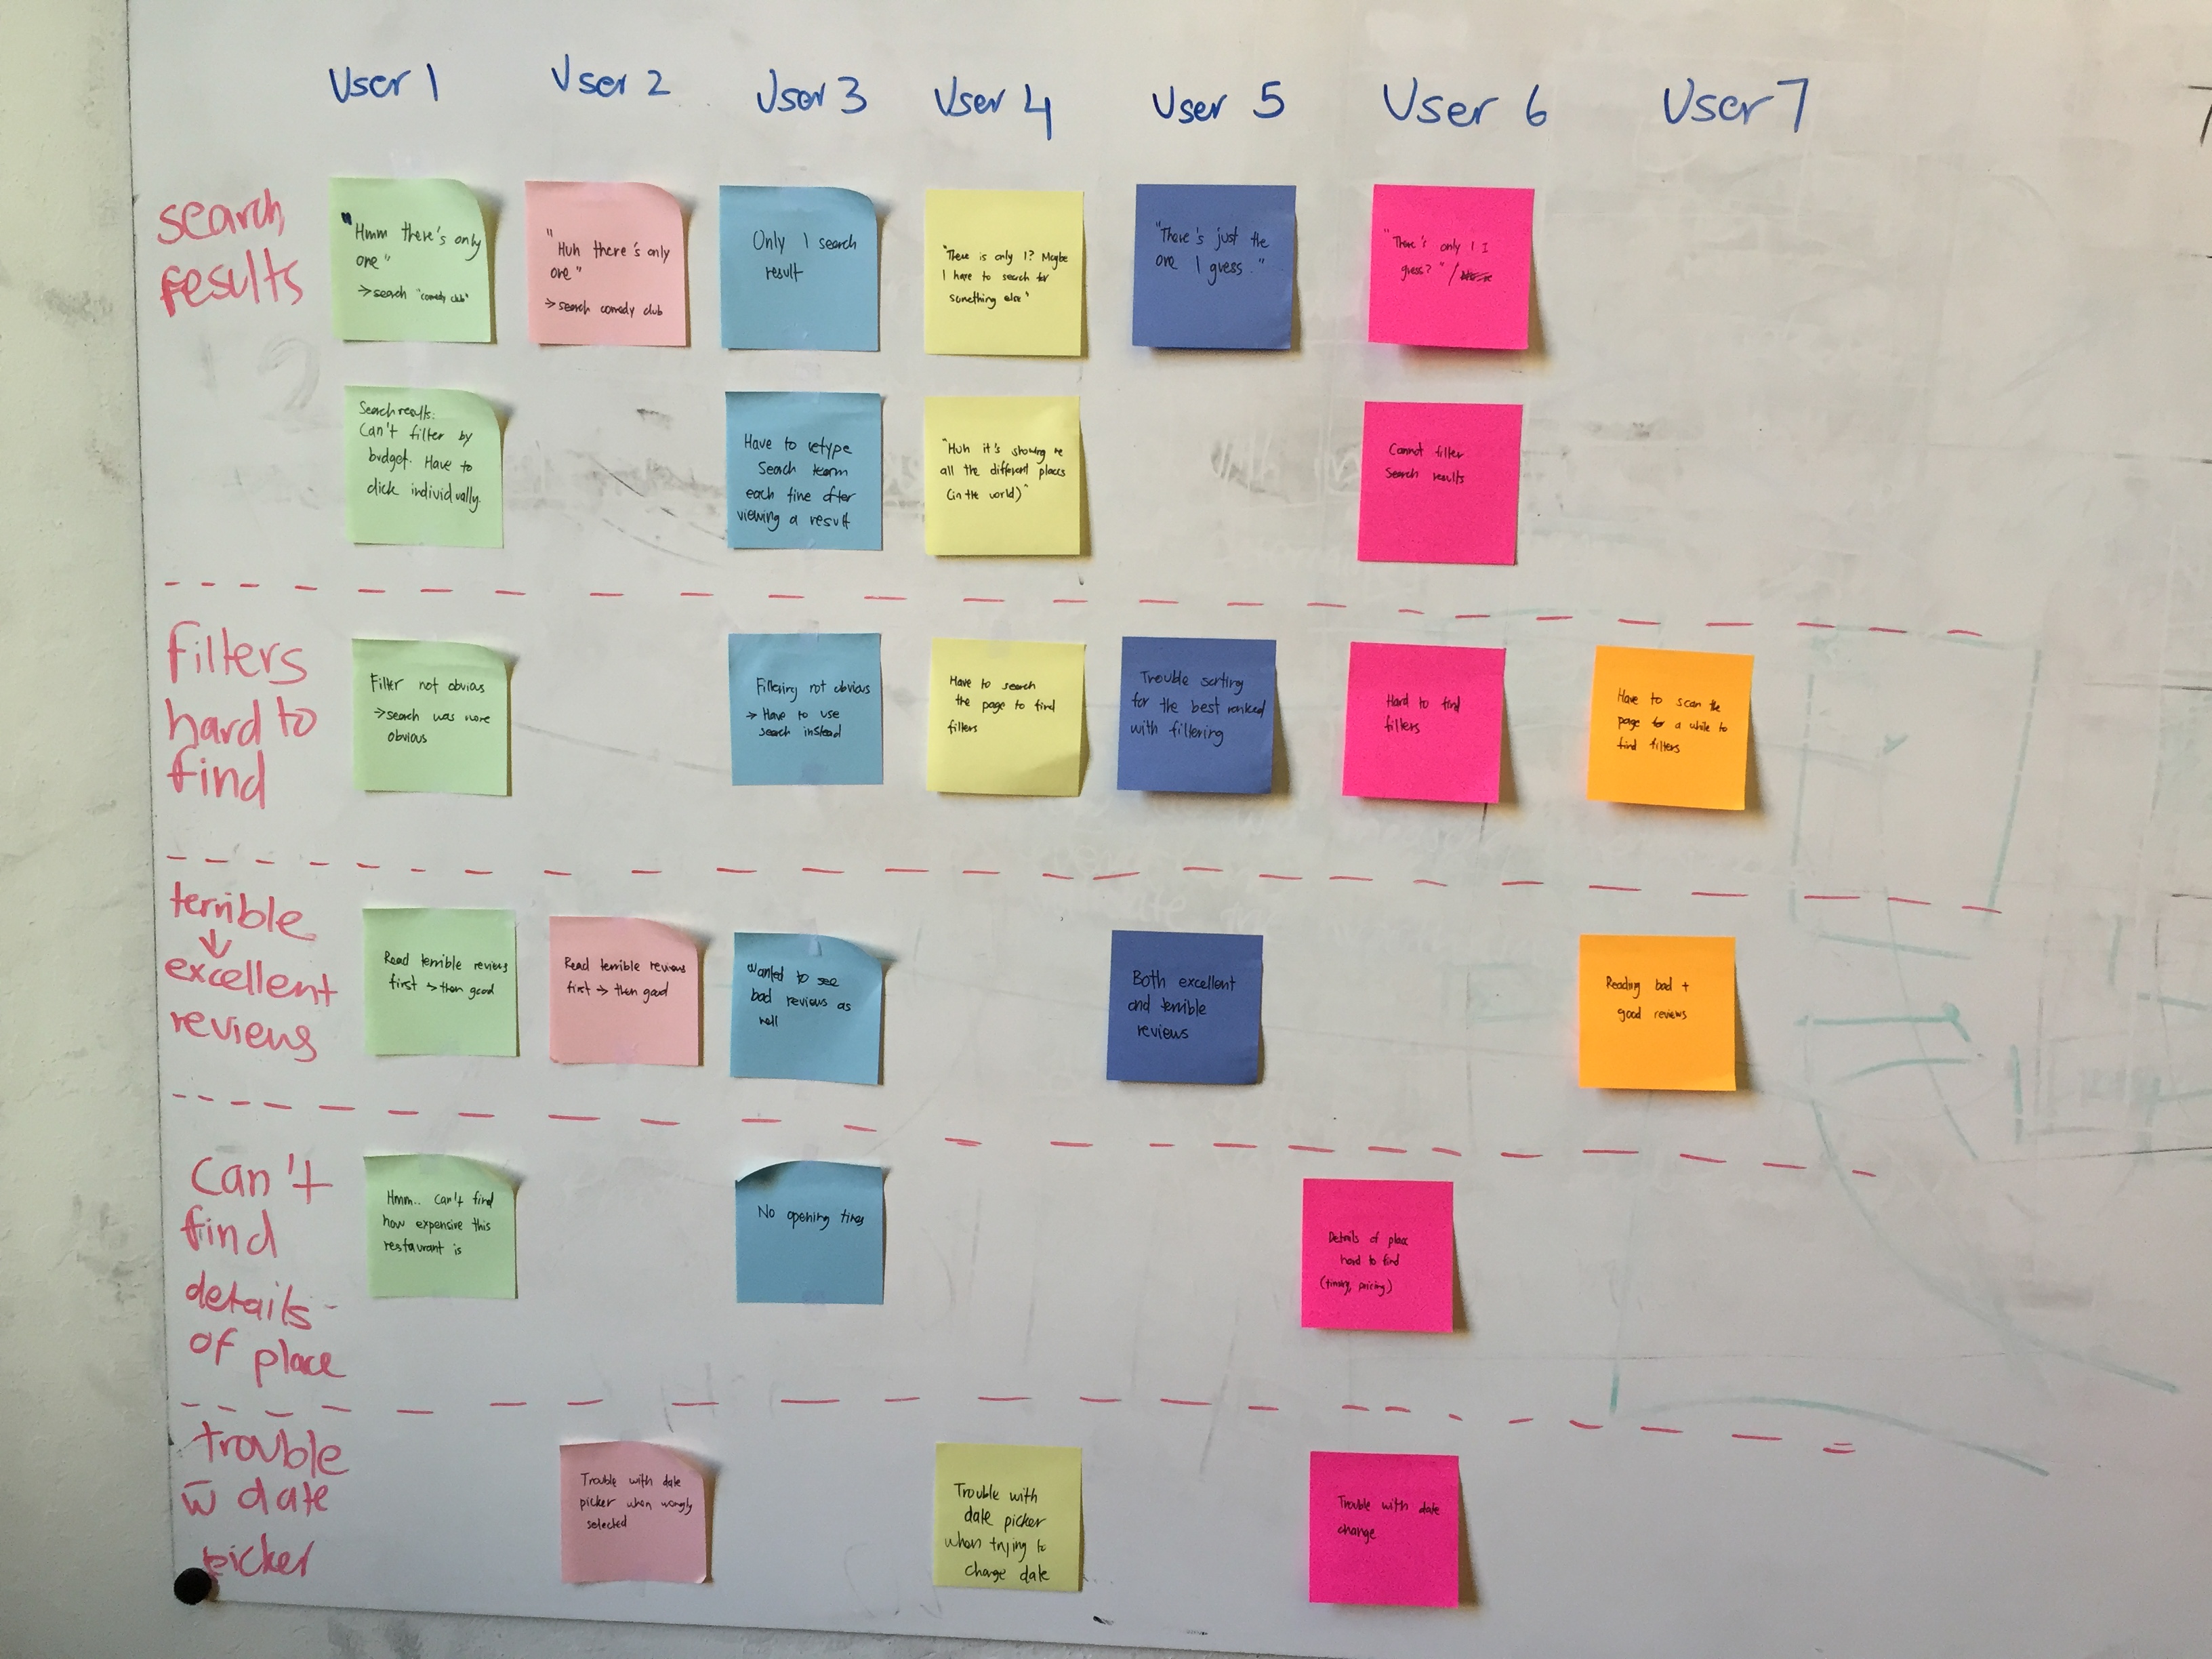 User 1
User 2
User 3
User 4
User 5
User 6
User 7
search
results
"Hmm there's only
one"
→search "comedy club"
"Huh there's only
one"
→search comedy club
Only 1 search
result
"There is only 1? Maybe
I have to search for
something else"
"There's just the
one I guess."
"There's only 1 I
guess?" /
Search results:
Can't filter by
budget. Have to
click individually.
Have to retype
Search term
each time after
viewing a result
"Huh it's showing me
all the different places
(in the world)"
Cannot filter
Search results
filters
hard to
find
Filter not obvious
→search was more
obvious
Filtering not obvious
→ Have to use
search instead
Have to search
the page to find
filters
Trouble sorting
for the best ranked
with filtering
Hard to find
filters
Have to scan the
page for a while to
find filters
terrible
↓
excellent
reviews
Read terrible reviews
first → then good
Read terrible reviews
first → then good
Wanted to see
bad reviews as
well
Both excellent
and terrible
reviews
Reading bad +
good reviews
Can't
find
details
of place
Hmm.. Can't find
how expensive this
restaurant is
No opening times
Details of place
hard to find
(timing, pricing)
trouble
w̄ date
picker
Trouble with date
picker when wrongly
selected
Trouble with
date picker
when trying to
change date
Trouble with date
change